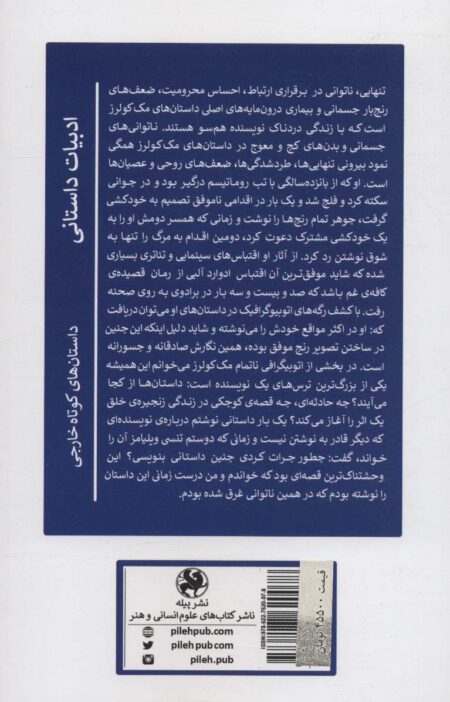 ادبیات داستانی
داستان‌های کوتاه خارجی
تنهایی، ناتوانی در برقراری ارتباط، احساس محرومیت، ضعف‌های
رنج‌بار جسمانی و بیماری درون‌مایه‌های اصلی داستان‌های مک‌کولرز
است که با زندگی دردناک نویسنده هم‌سو هستند. ناتوانی‌های
جسمانی و بدن‌های کج و معوج در داستان‌های مک‌کولرز همگی
نمود بیرونی تنهایی‌ها، طردشدگی‌ها، ضعف‌های روحی و عصیان‌ها
است. او که از پانزده‌سالگی با تب روماتیسم درگیر بود و در جوانی
سکته کرد و فلج شد و یک بار در اقدامی ناموفق تصمیم به خودکشی
گرفت، جوهر تمام رنج‌ها را نوشت و زمانی که همسر دومش او را به
یک خودکشی مشترک دعوت کرد، دومین اقدام به مرگ را تنها به
شوق نوشتن رد کرد. از آثار او اقتباس‌های سینمایی و تئاتری بسیاری
شده که شاید موفق‌ترین آن اقتباس ادوارد آلبی از رمان قصیده‌ی
کافه‌ی غم باشد که صد و بیست و سه بار در برادوی به روی صحنه
رفت. با کشف رگه‌های اتوبیوگرافیک در داستان‌های او می‌توان دریافت
که: او در اکثر مواقع خودش را می‌نوشته و شاید دلیل اینکه این چنین
در ساختن تصویر رنج موفق بوده، همین نگارش صادقانه و جسورانه
است. در بخشی از اتوبیگرافی ناتمام مک‌کولرز می‌خوانم این همیشه
یکی از بزرگ‌ترین ترس‌های یک نویسنده است: داستان‌ها از کجا
می‌آیند؟ چه حادثه‌ای، چه قصه‌ی کوچکی در زندگی زنجیره‌ی خلق
یک اثر را آغاز می‌کند؟ یک بار داستانی نوشتم درباره‌ی نویسنده‌ای
که دیگر قادر به نوشتن نیست و زمانی که دوستم تنسی ویلیامز آن را
خواند، گفت: چطور جرات کردی چنین داستانی بنویسی؟ این
وحشتناک‌ترین قصه‌ای بود که خواندم و من درست زمانی این داستان
را نوشته بودم که در همین ناتوانی غرق شده بودم.
نشر پیله
ناشر کتاب‌های علوم انسانی و هنر
pilehpub.com
pilehpub.com
pileh.pub
ISBN: 978-622-7620-97-8
قیمت ۴۵۵۰۰ تومان